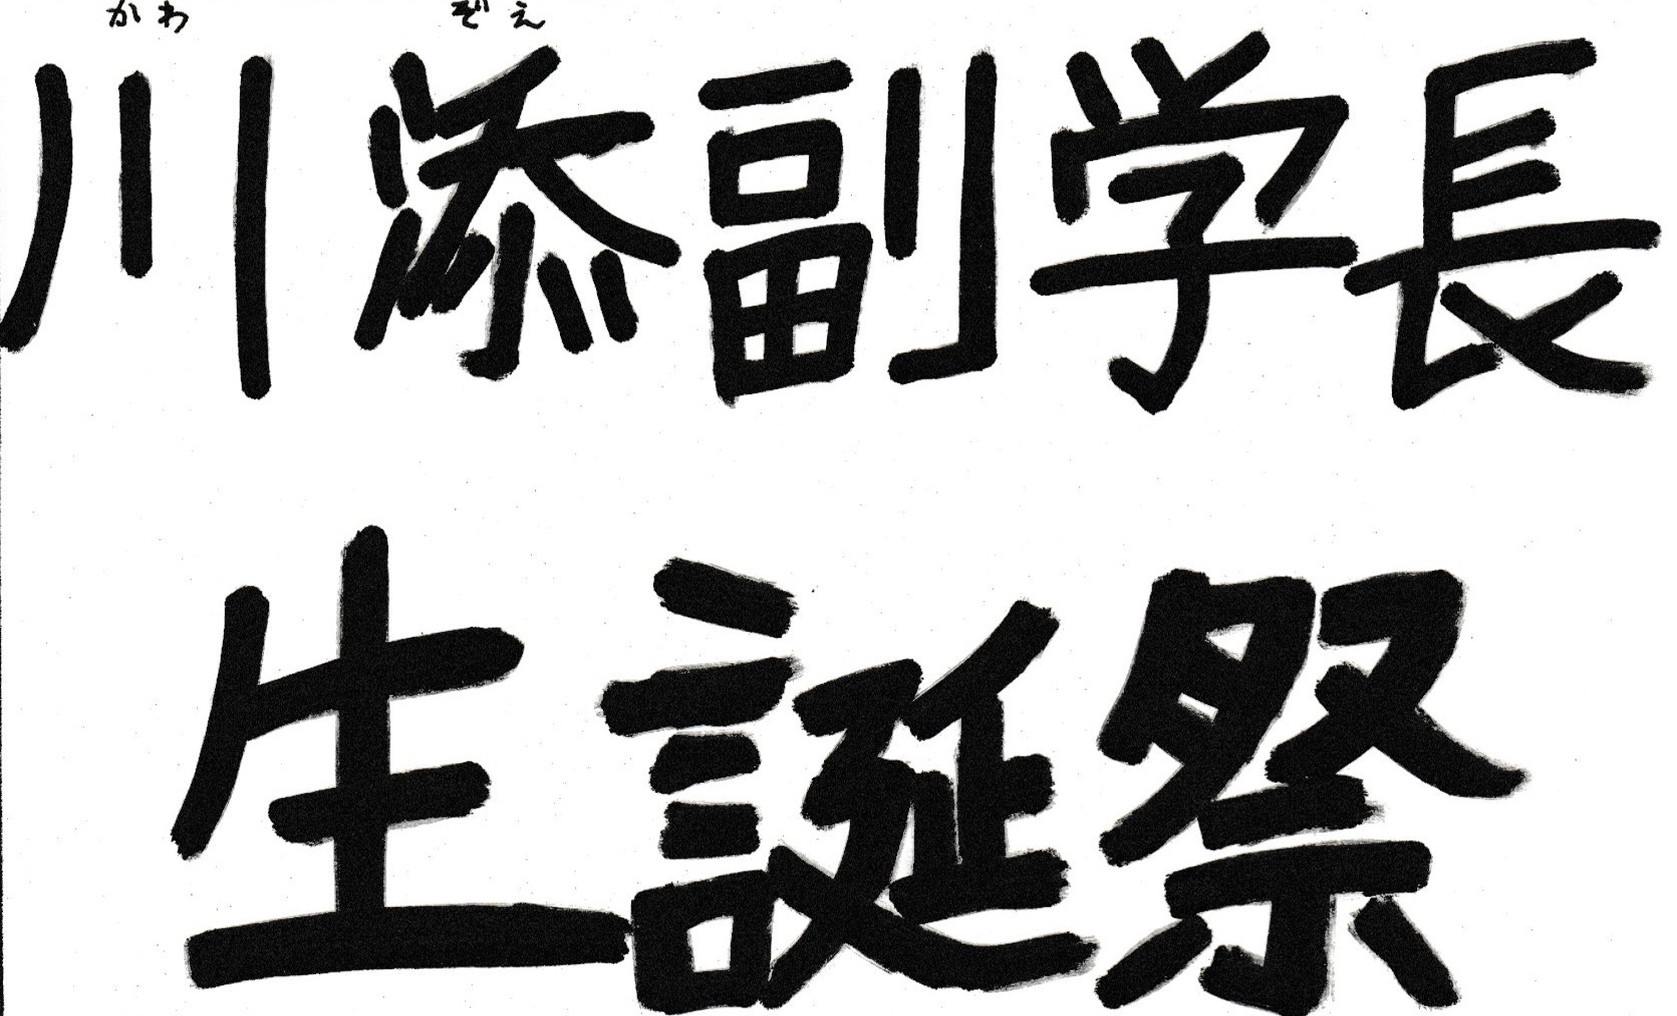 かわ ぞえ
川添副学長
生誕祭